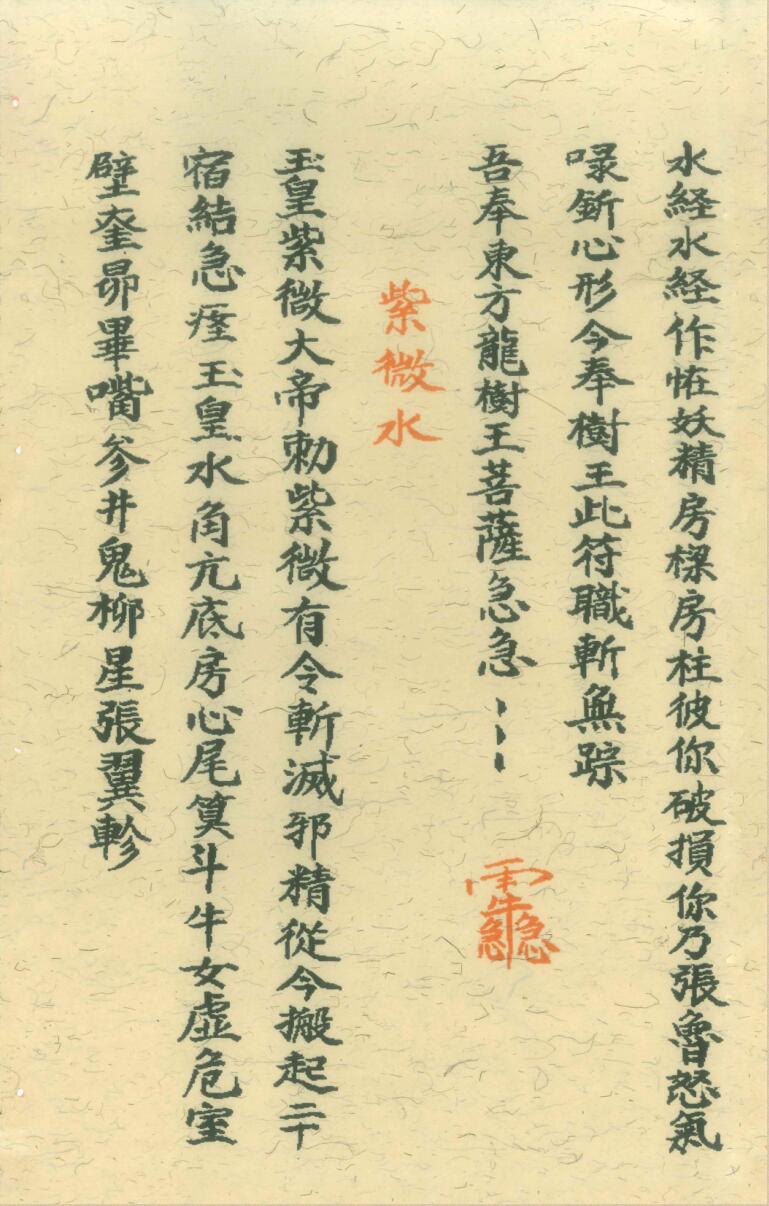 水経水経作恠妖精房樑房柱彼你破損你乃張魯怒氣
㖨斵心形今奉樹王此符職斬無踪
吾奉東方龍樹王菩薩急急
紫微水
玉皇紫微大帝勅紫微有令斬滅邪精從今搬起二十
宿結急玉皇水角亢底房心尾箕斗牛女虚危室
壁奎昴畢嘴参井鬼柳星張翼軫